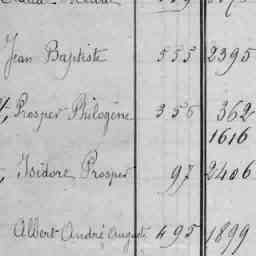 Jean Baptiste 555 2395
Prosper Philogène 356 362
1616
Isidore Prosper 97 2406
Albert André Auguste 495 1899